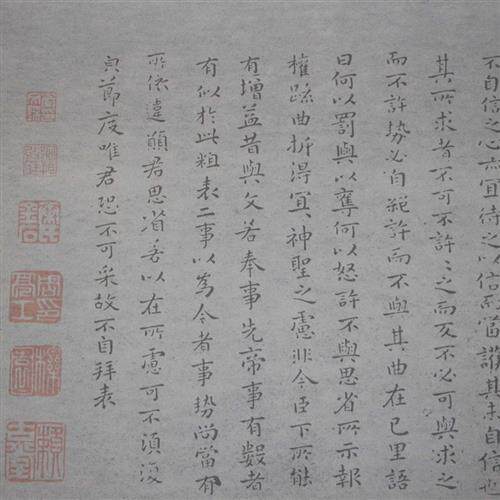 不自信之心亦宜待之以信而當護其未自信也
其所求者不可不許々之而反不必可與求之
而不許勢必自絕許而不與其曲在己里語
曰何以罰與以奪何以怒許不與思省所示報
權疏曲折得宜々神聖之慮非今臣下所能
有增益昔與文若奉事先帝事有數者
有似於此粗表二事以為今者事勢尚當有
所依違願君思省若以在所慮可不須復
節度唯君恐不可采故不自拜表